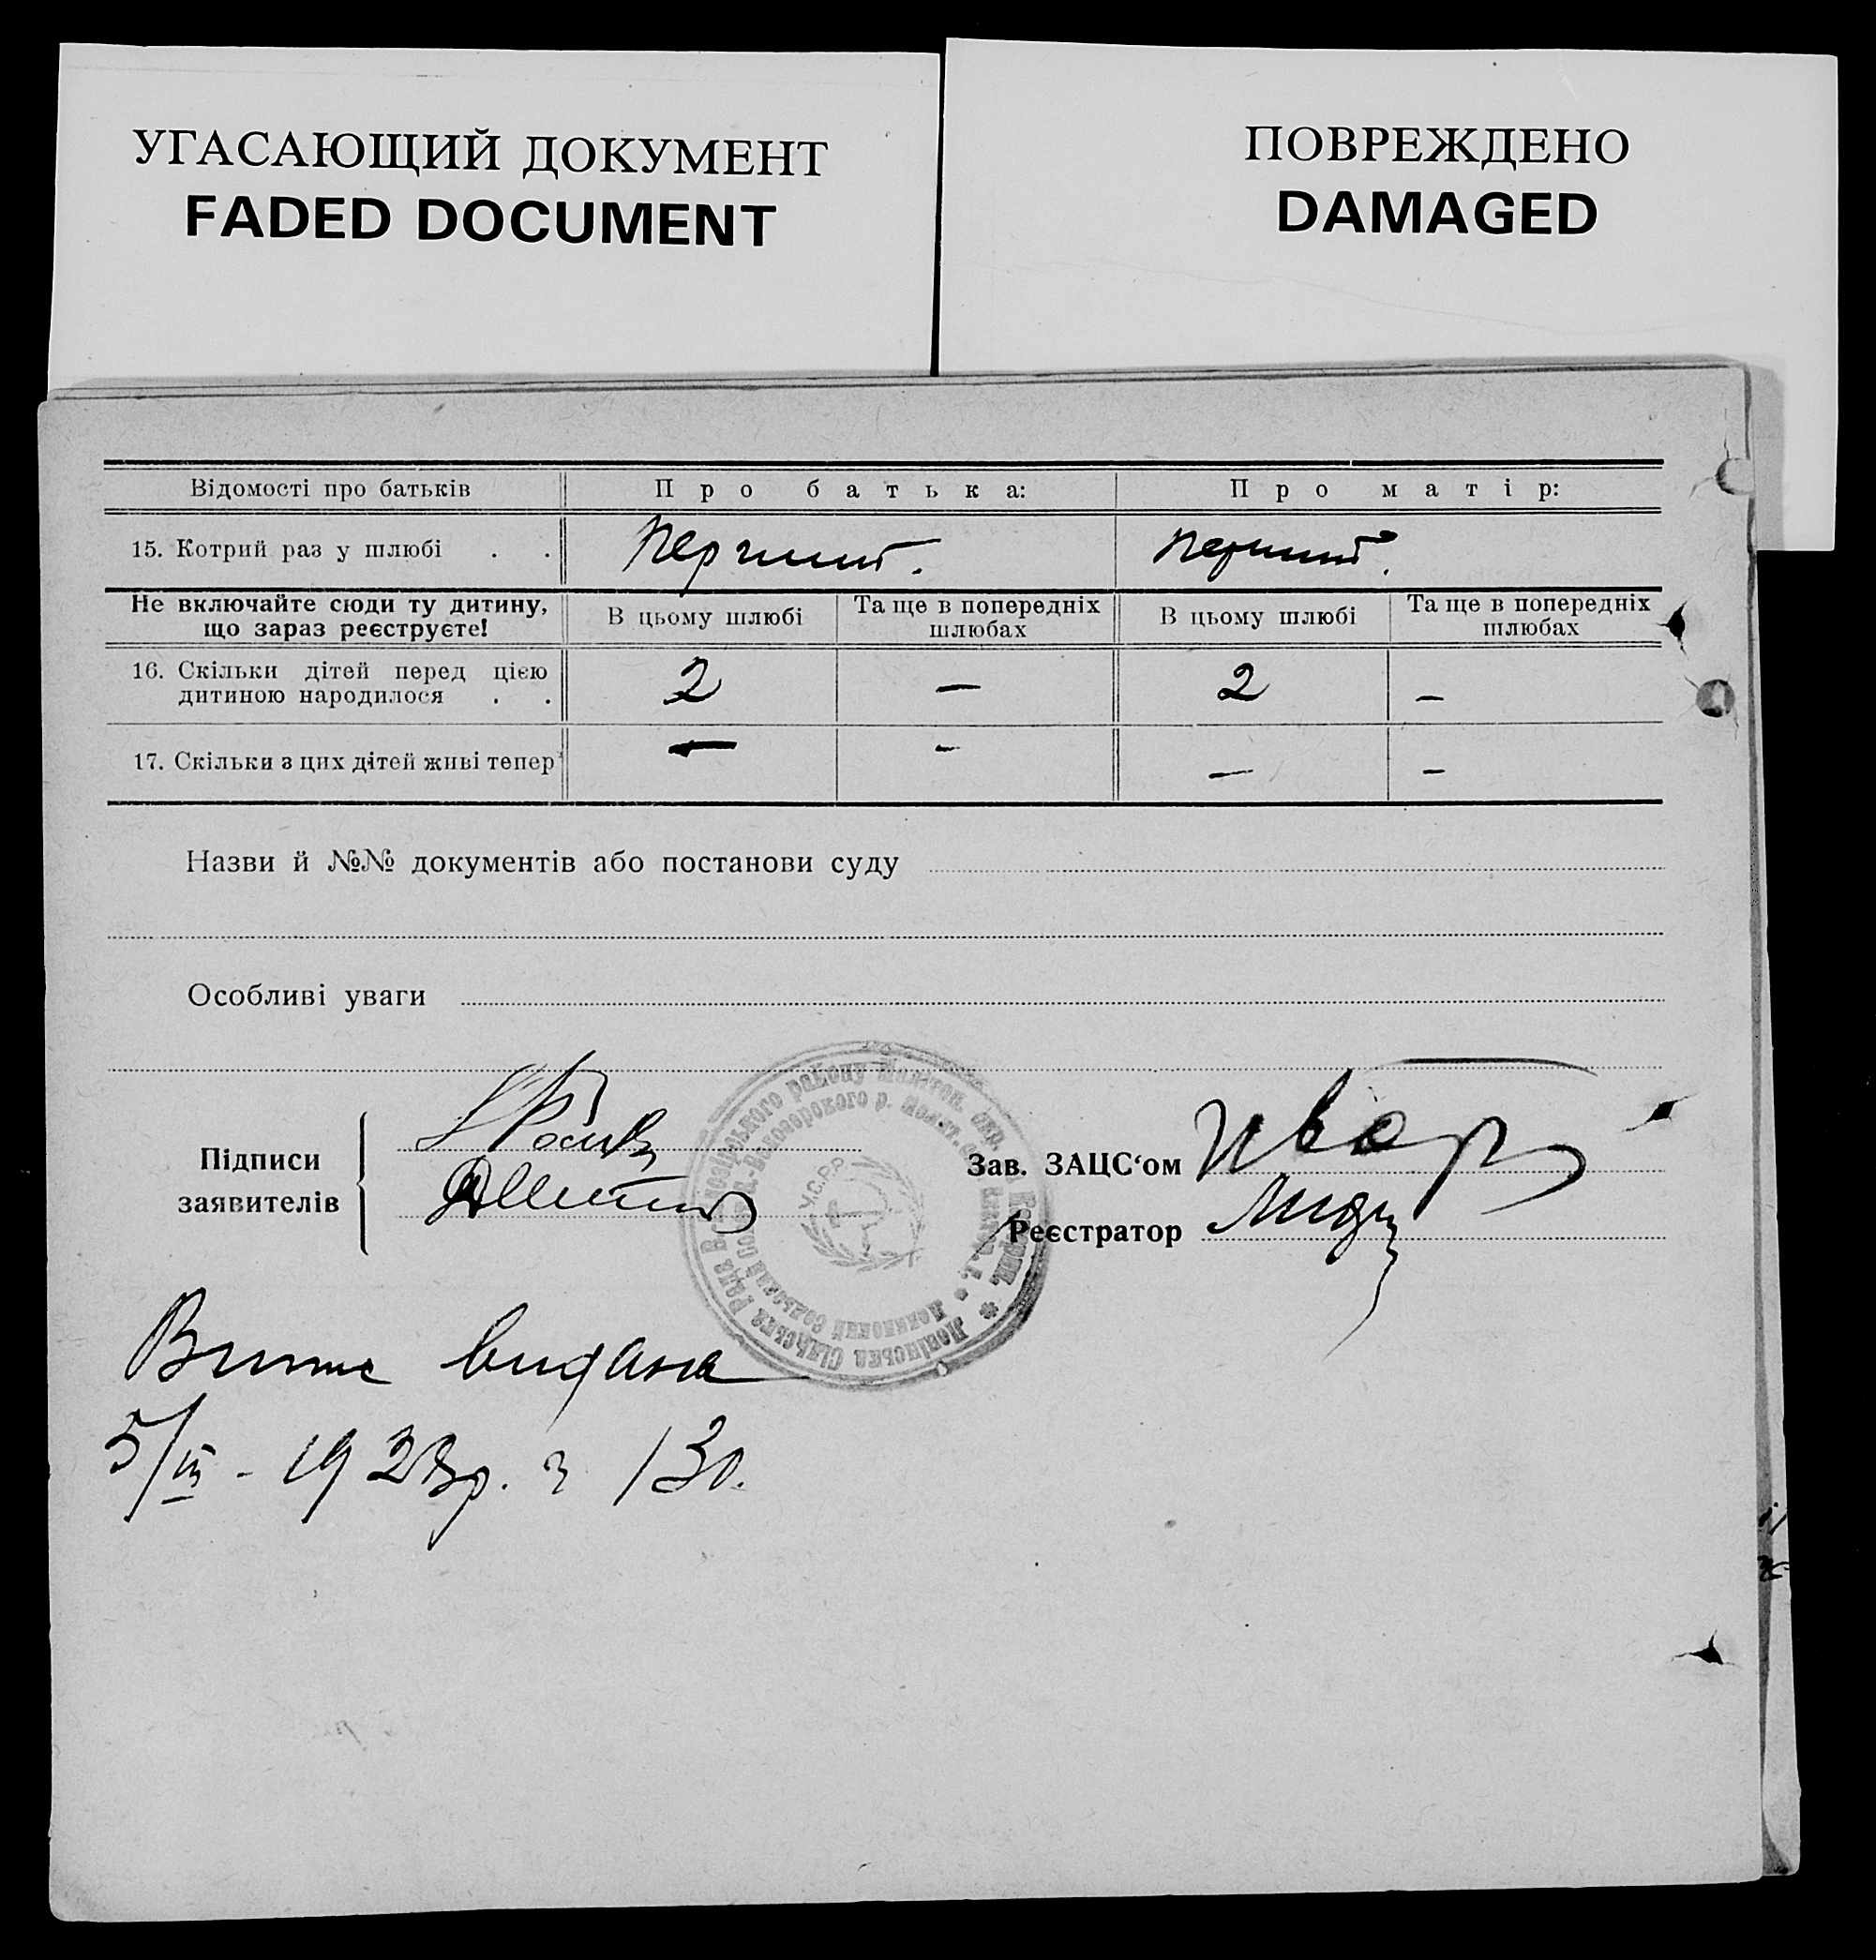 УГАСАЮЩИЙ ДОКУМЕНТ
FADED DOCUMENT
ПОВРЕЖДЕНО
DAMAGED
Відомості про батьків
Про батька:
Про матір:
15. Котрий раз у шлюбі . .
перший.
перший.
Не включайте сюди ту дитину,
що зараз реєструєте!
В цьому шлюбі
Та ще в попередніх
шлюбах
В цьому шлюбі
Та ще в попередніх
шлюбах
16. Скільки дітей перед цією
дитиною народилося . .
2
—
2
—
17. Скільки з цих дітей живі тепер
—
-
—
—
Назви й №№ документів або постанови суду
Особливі уваги
Підписи
заявителів
Зав. ЗАЦС‘ом
Реєстратор
У.С.Р.Р.
видана
5/III - 1928 р. 130.